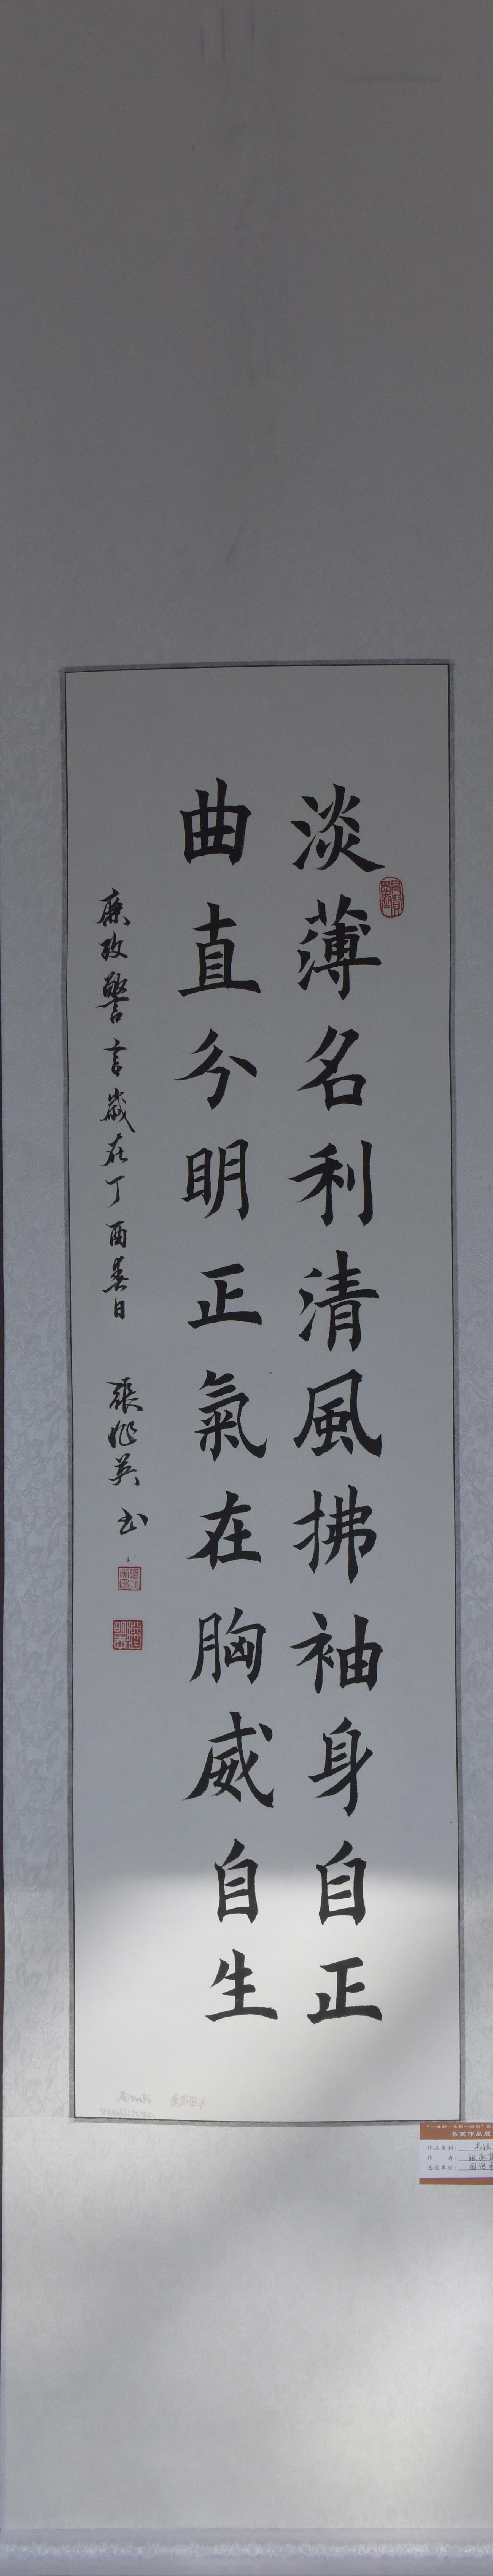 淡薄名利清風拂袖身自正
曲直分明正氣在胸威自生
廉政警言歲在丁酉春日
張 英書
书画作品展
作品类别：书法
作 者：
选送单位：